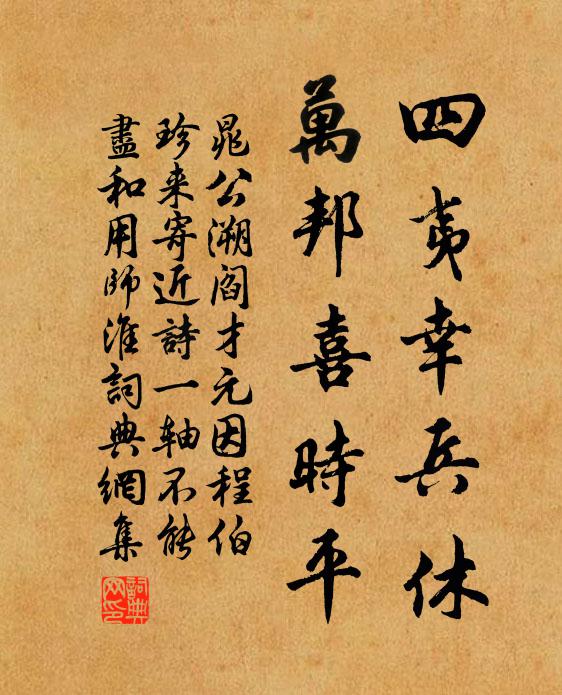 四夷幸兵休
萬邦喜時平
晁公溯閻才元因程伯
珍来寄近詩一轴不能
盡和用師淮詞典網集
詞典網印